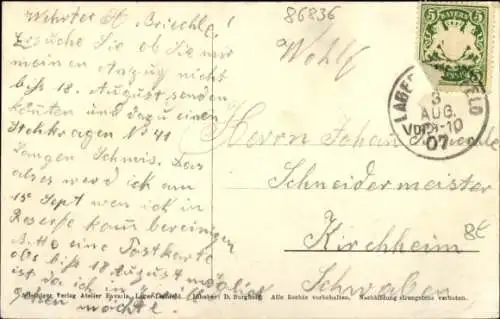 Wehrter H. Briechle!
Ersuche Sie ob Sie mir
meinen Anzug nicht
biß 18. August senden
könten und dazu einen
Stehkragen No 41
Das
alles werd ich am
15 Sept wen ich in
Reserfe kom bereinigen
Bitte eine Postkarte
obs biß 18 August möglich
ist da ich in
gehen möchte.
86836
Wohlg
Herrn Johan
Schneidermeister
Kirchheim
Schwaben
BAYERN
5
5
PFENNIG
3
AUG.
Vorm 9-10
07
8E
Verlag Atelier Bavaria, Lager-Lechfeld. Inhaber: D. Burghold. Alle Rechte vorbehalten. Nachbildung strengstens verboten.